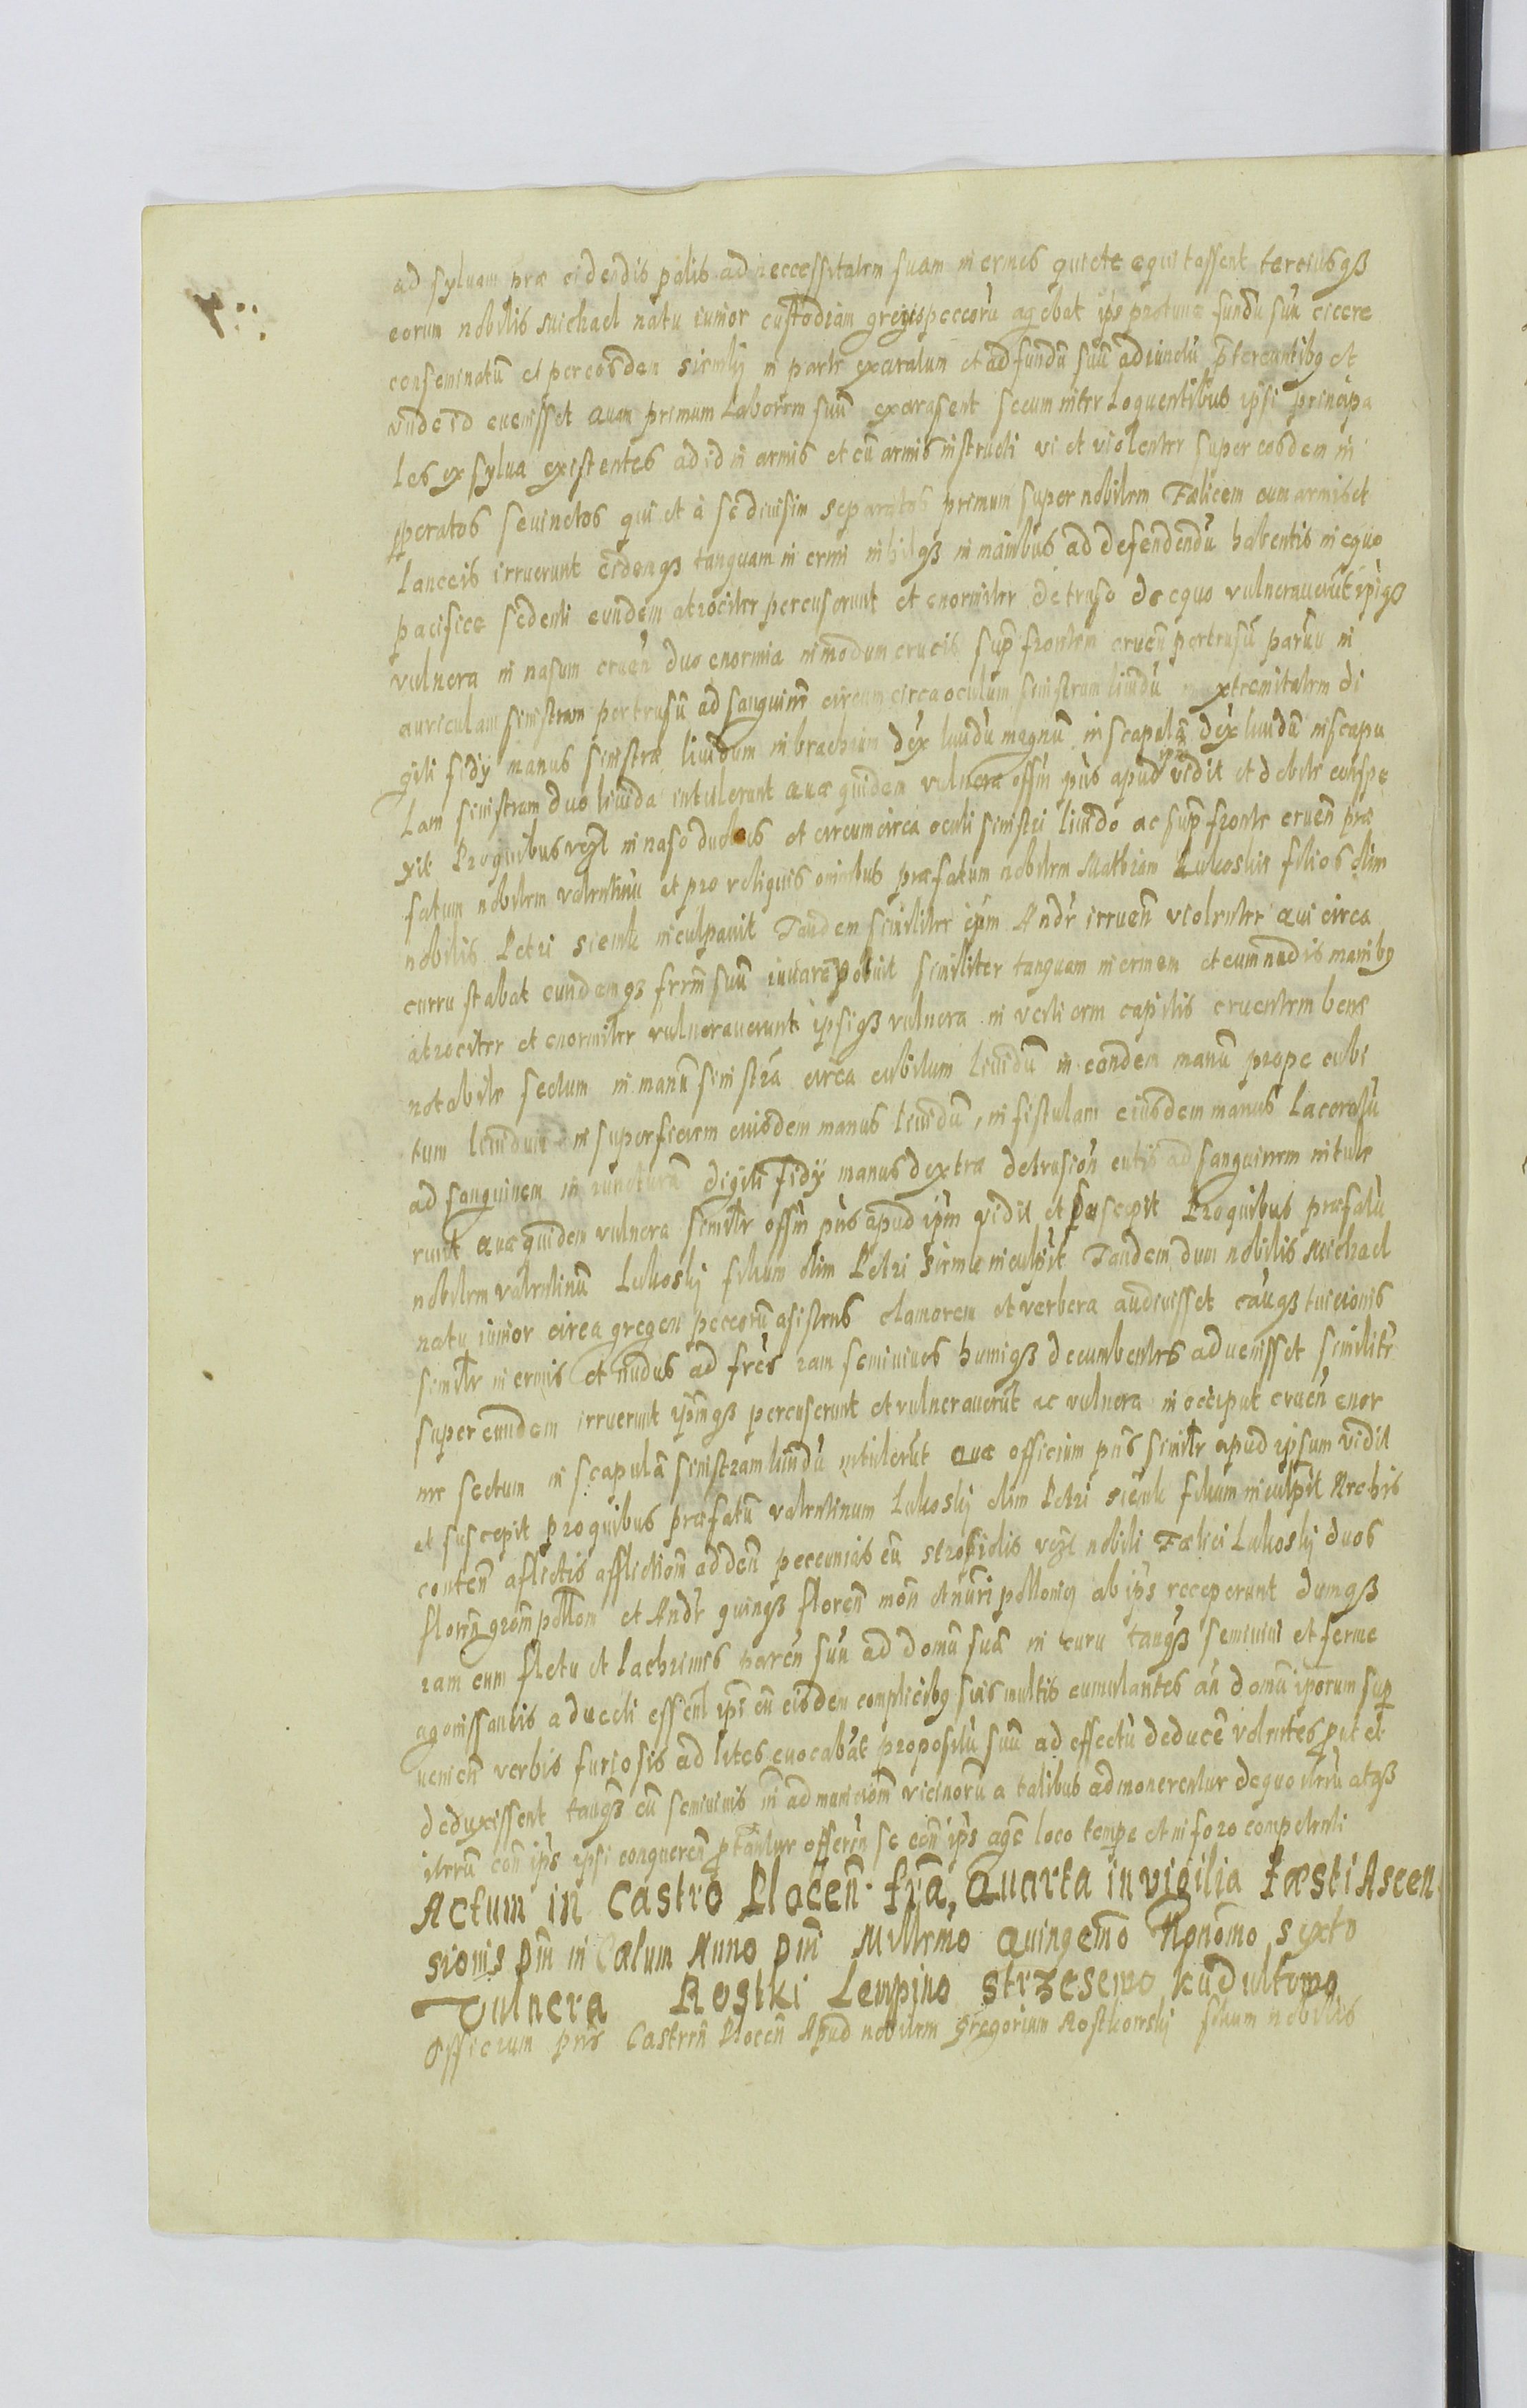 ad sylvam præ cidendis palis ad neccessitatem suam inermes quiete equitassent terciusqȝ
eorum nobilis Michael natu iunior custodiam gregis peccorū agebat ips protunc fundū suū cicere
conseminatū et per eosdem similij in parte exaratum et ad fundū suū adiunctū p̄tereuntibꝯ et
vnde id evenisset quam primum Laborem suū exarasent secum inter Loquentibus ipsi principa
les ex sylua existentes ad id in armis et cū armis instructi vi et violenter super eosdem in
peratos seuinctos qui et à se divisim separatos primum super nobilem Fælicem cum armis et
Lanceis irruerunt eūdemqȝ tanquam in ermi nihilqȝ in manibus ad defendendū habentis in equo
pacifice sedenti eundem atrociter percuserunt et enormiter detruso de equo vulneraverūt ipiqȝ
vulnera in nasum cruen̄ duo enormia in modum crucis sup̄ frontem cruen̄ pertusū paruū in
auriculam sinistram pertusū ad sanguinē circum circa oculum sinistrum liuidū extremitatem di
giti fidy manus sinistræ liuidum in brachium dex liuidū magnū in scapulā dex liuidū in scapu
Lam sinistram duo liuida intulerunt quæ quidem vulnera offm̄ pn̄s apud ipm̄ vidit et debite conspe
xit Pro quibus vczt in naso duobus et circumcirca oculi sinistri liuido ac sup̄ fronte cruen̄ præ
fatum nobilem valentinū et pro reliquis omnibus præfatum nobilem Mathiam Lukoskie filios olim
nobilis Petri Siemk inculpauit Tandem similiter ipm̄ Andr̄ irruen̄ violenter qui circa
curru stabat eundemqȝ frem̄ suū iuuare potuit similiter tanquam inermem et cum nudis manibꝯ
atrociter et enormiter vulneraverunt ipsiqȝ vulnera in verticem capitis cruentem bene
notabile sectum in manū sinistrā circa cubitum liuidū in eandem manū prope cubi
tum liuidum in superficiem eiusdem manus liuidū, in fistulam eiusdem manus Laceratū
ad sanguinem in iuncturā digiti fidy manus dextra detrusion̄ cutis ad sanguinem intule
runt quæ quidem vulnera similr offm̄ pn̄s apud ipm̄ vidit et suscepit Pro quibus præfatū
nobilem valentinū Lukoskj filium olim Petri Siemk inculp̄it Tandem dum nobilis Michael
natu iunior circa gregem peccorū asistens clamorem et verbera audivisset cāuqȝ tuicionis
similr inermis et nudus ad fr̄es iam seminiues humiqȝ decumbentes advenisset similiter
super eundem irruerunt ipm̄qȝ percuserunt et vulneraverūt ac vulnera in occiput cruen̄ enor
me sectum in scapulā sinistram liuidū intulerūt quæ officium pn̄s similr apud ipsum vidit
et suscepit pro quibus præfatū valentinum Lukoskj olim Petri Siemk filium inculp̄it Ne his
conten̄ aflictis afflictiom̄ adden̄ peccunias cū strofiolis vczt nobili Fælici Lukoskj duos
floren̄ grom̄ pollon̄ et Andr̄ quinqȝ floren̄ mon̄ et nu̅ri pollonicj ab ip̄s receperunt dumqȝ
iam cum fletu et Lachrimis paren̄ suū ad domū suā in curu tanqȝ seminiui et ferme
agonissantis aducti essent ipi cū eisdem complicibꝯ suis multis cumulantes an̄ domū iporum sup
venien̄ verbis furiosis ad lites euocabāt propositū suū ad effectū deducē volentes put et
deduxissent tanqȝ cū seminiuis ni ad manicōm vicinorū a talibus admonerentur de quo iterū atqȝ
iterū con̄ ip̄s ipsi conqueren̄ p̄tantur offeren̄ se con̄ ip̄s agē loco tempe et in foro competenti
Actum in Castro Plocen̄. fr̄a, Quarta in vigilia Fæsti Ascen
sionis Dn̄i in Cælum Anno Dn̄i Millemo Quingemo Nonomo sexto
Vulnera Rostki Lempino Strzesewo kudultowo
Officium pn̄s Castren̄ Plocen̄ Apud nobilem Gregorium Rostkowskj filium nobilis